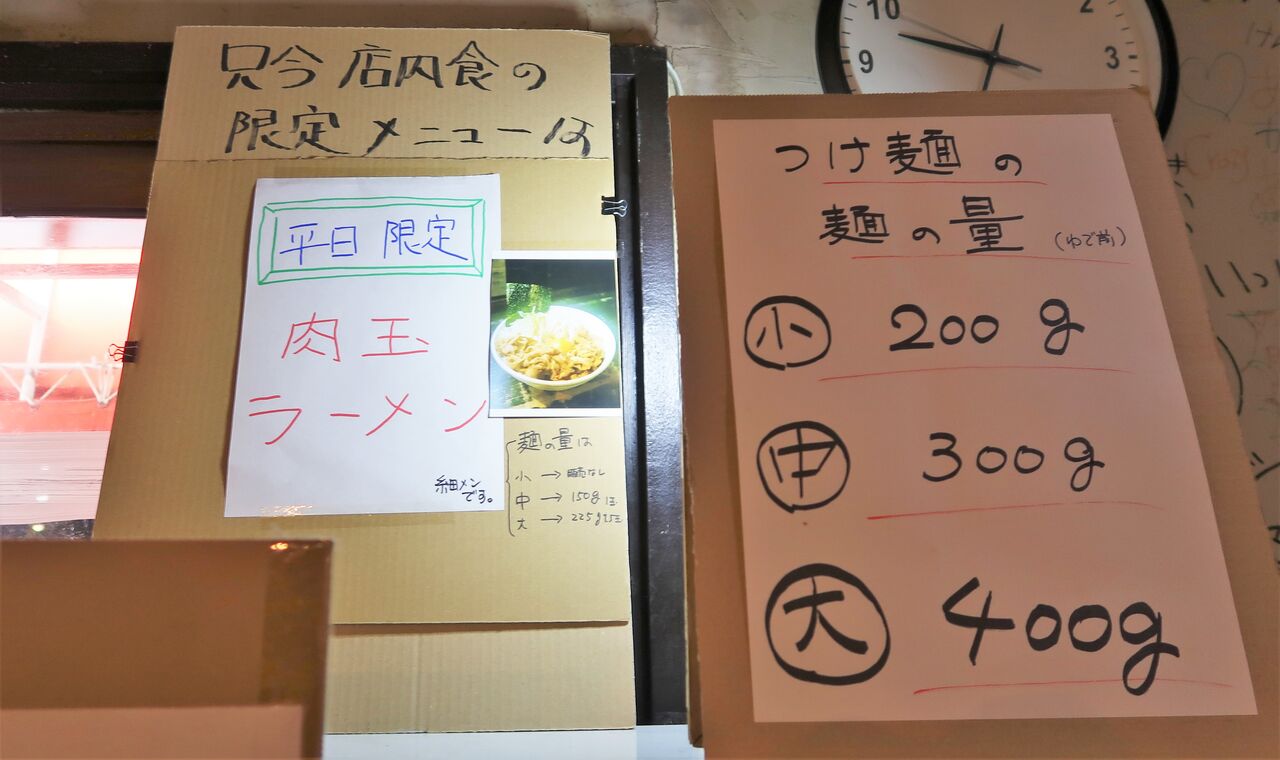 只今 店内食の
限定 メニューは
平日 限定
肉玉
ラーメン
細メン
です。
麺の量は
小 → 販売なし
中 → 150g 1玉
大 → 225g 1.5玉
つけ麺の
麺の量 (ゆで前)
小 200g
中 300g
大 400g
10
9
2
3